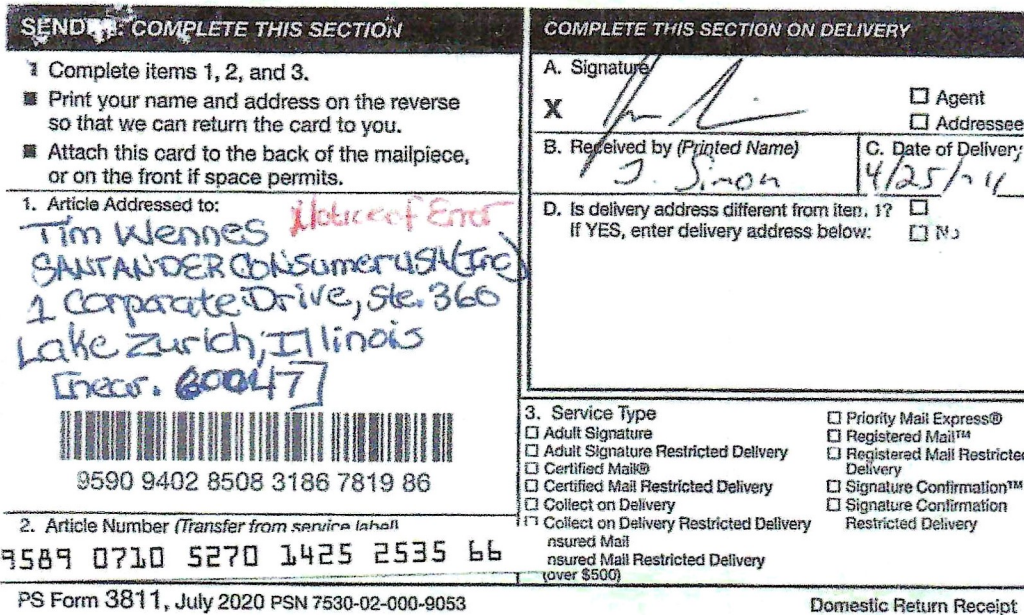 SENDER: COMPLETE THIS SECTION
Complete items 1, 2, and 3.
Print your name and address on the reverse
so that we can return the card to you.
Attach this card to the back of the mailpiece,
or on the front if space permits.
1. Article Addressed to:
Notice of Error
Tim Wennes
SANTANDER Consumer USA (Inc)
1 Corporate Drive, Ste. 360
Lake Zurich, Illinois
[near. 60047]
9590 9402 8508 3186 7819 86
2. Article Number (Transfer from service label)
9589 0710 5270 1425 2535 66
COMPLETE THIS SECTION ON DELIVERY
A. Signature
X
Agent
Addressee
B. Received by (Printed Name)
J. Simon
C. Date of Delivery
4/25/
D. Is delivery address different from item 1?
If YES, enter delivery address below:
No
3. Service Type
Adult Signature
Adult Signature Restricted Delivery
Certified Mail®
Certified Mail Restricted Delivery
Collect on Delivery
Collect on Delivery Restricted Delivery
nsured Mail
nsured Mail Restricted Delivery
(over $500)
Priority Mail Express®
Registered Mail™
Registered Mail Restricted
Delivery
Signature Confirmation™
Signature Confirmation
Restricted Delivery
PS Form 3811, July 2020 PSN 7530-02-000-9053
Domestic Return Receipt